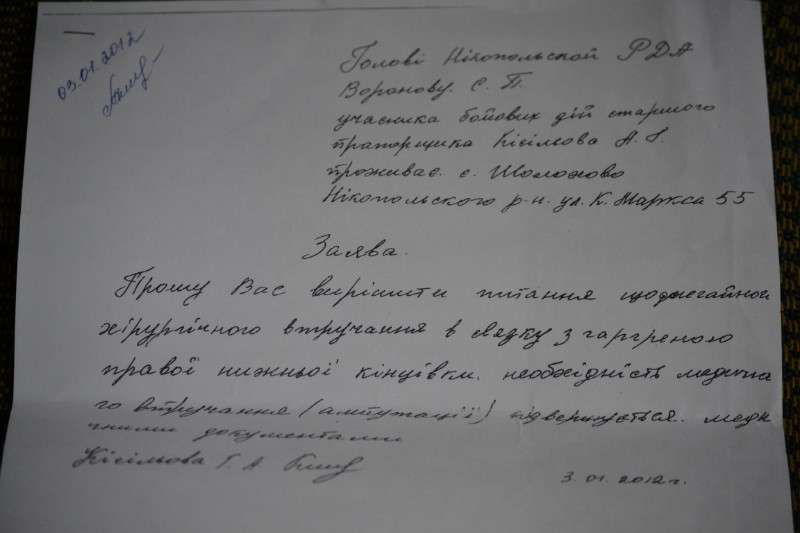 03.01.2012
Голові Нікопольской РДА
Воронову. С. П.
учасника бойових дій старшого
прапорщика Кісільова А. Г.
проживає. с. Шолохово
Нікопольского р-н. ул. К. Маркса 55
Заява.
Прошу Вас вирішити питання
хірургічного втручання в звязку з гаргреною
правої нижньої кінцівки. необхідність медична
го втручання (ампутації) меди
чними документами
Кісільова Г. А.
3. 01. 2012 г.